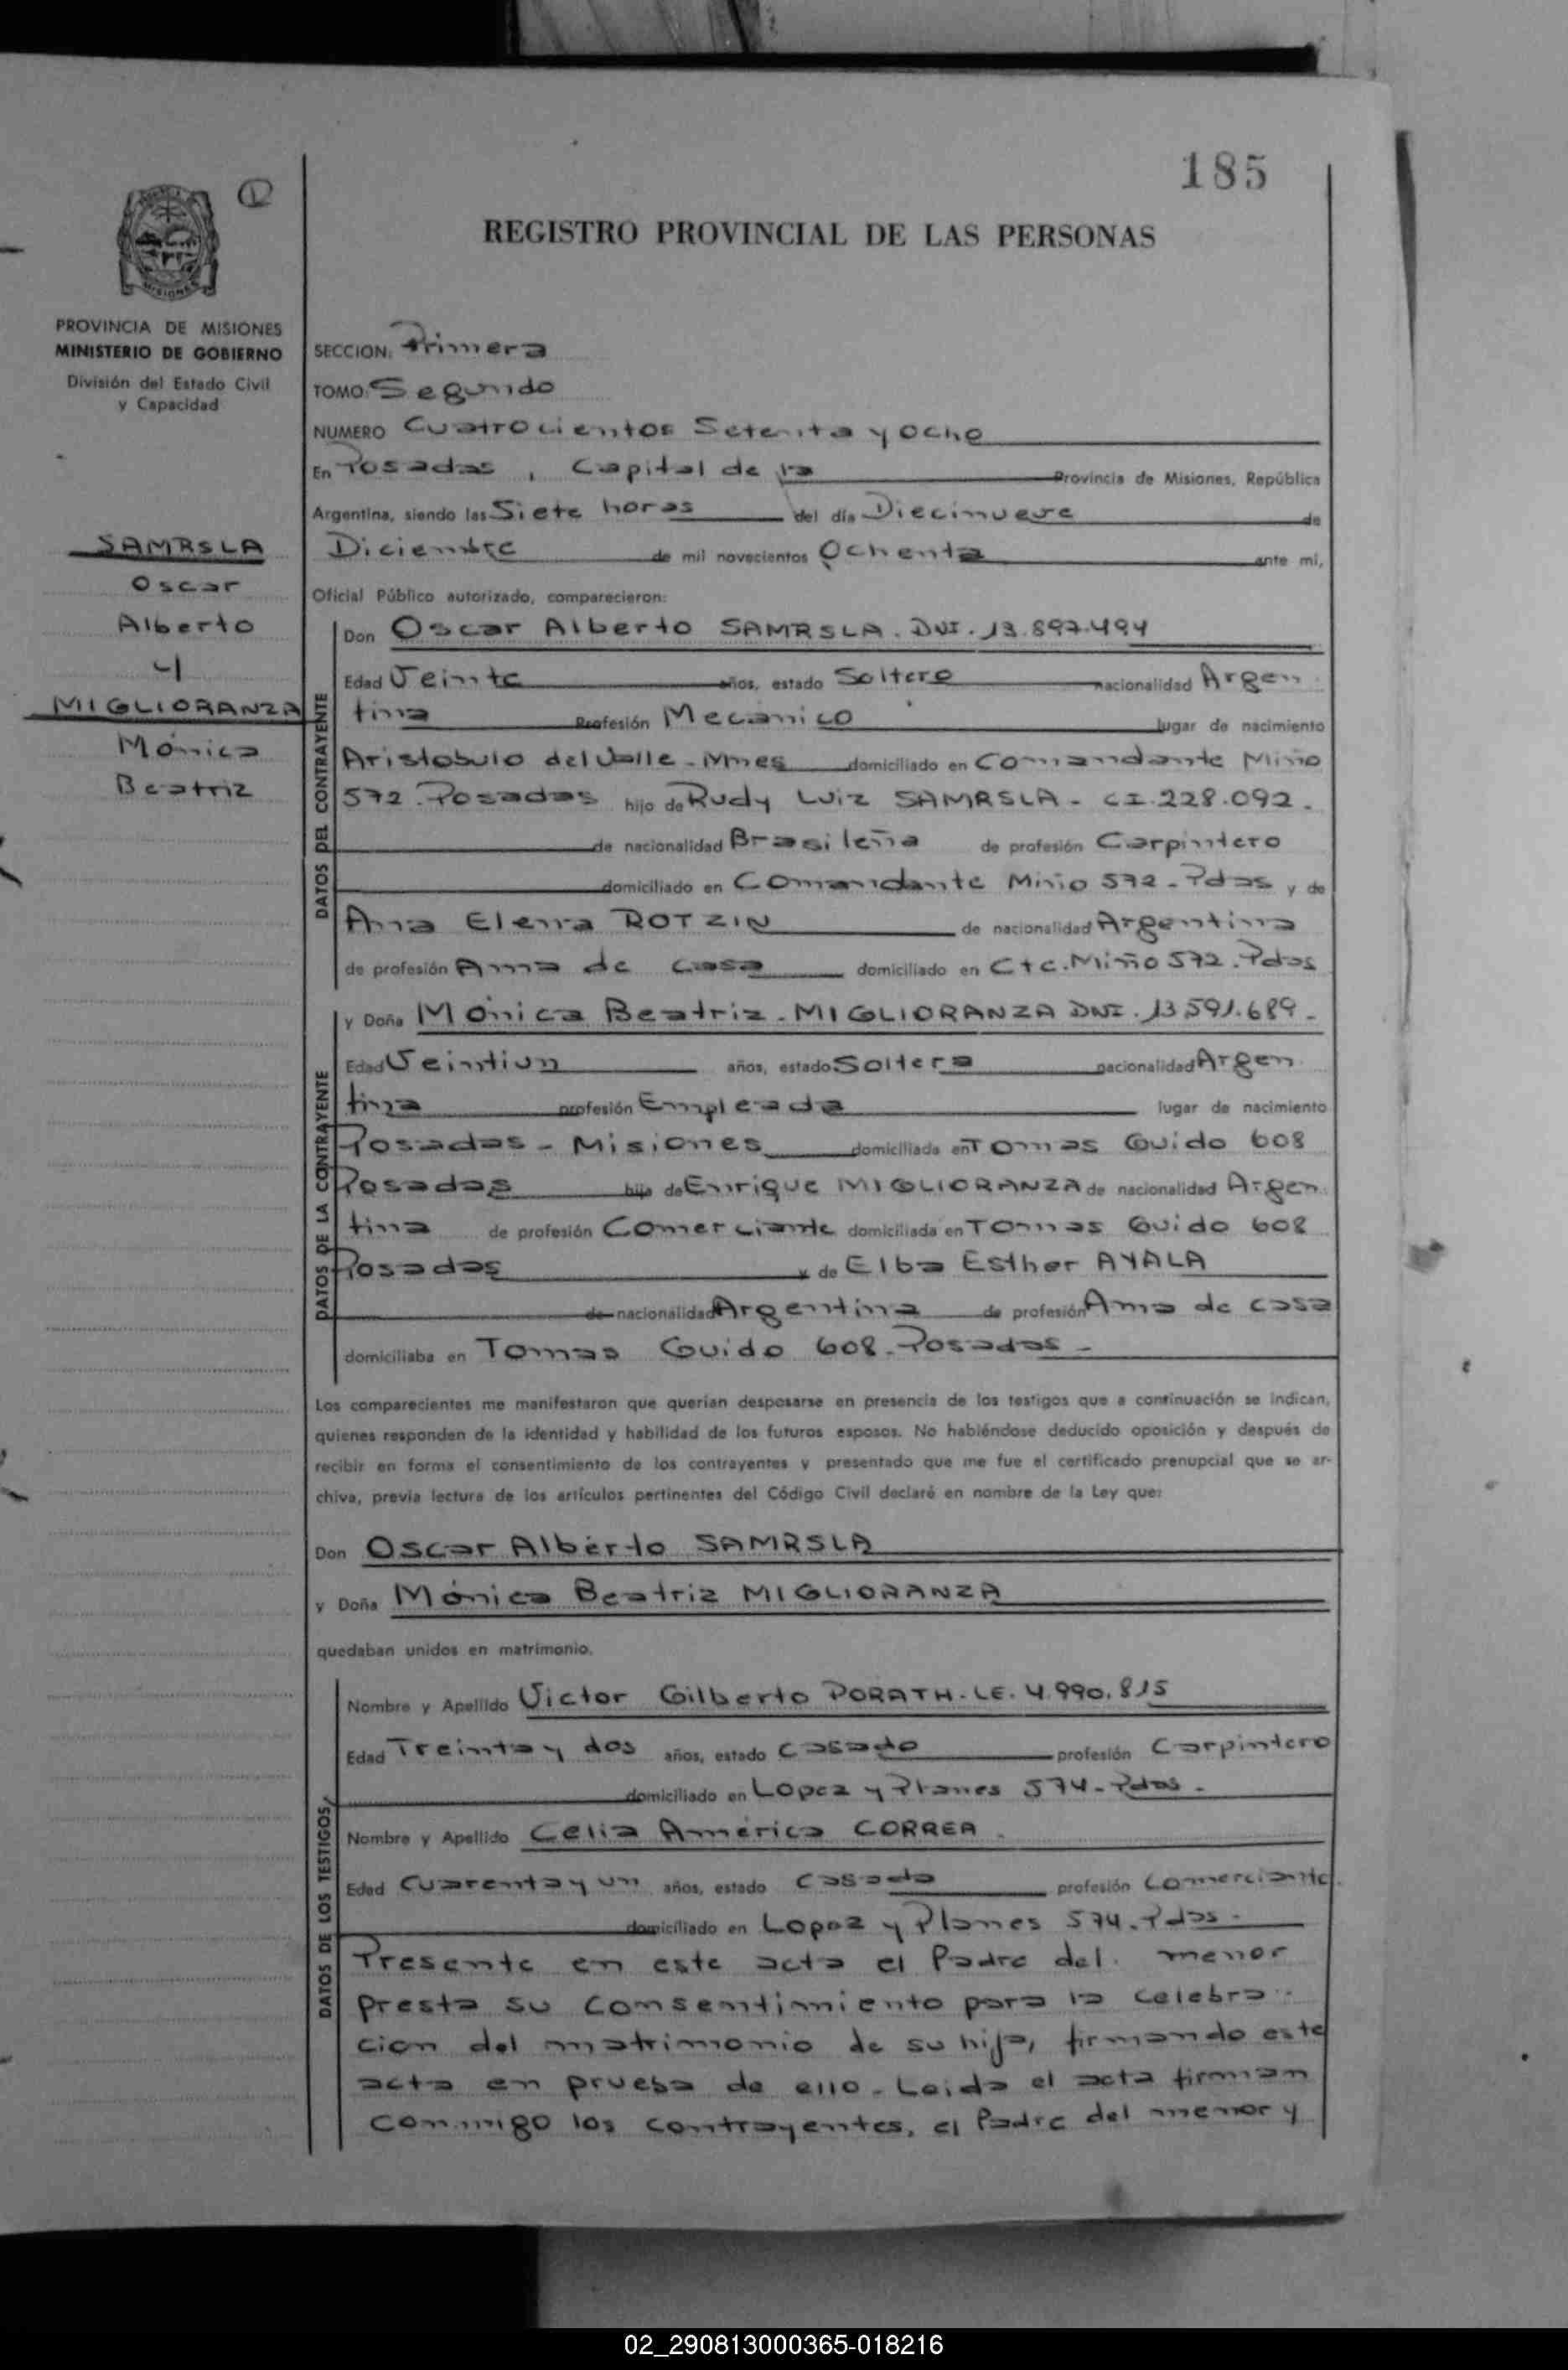 185
REGISTRO PROVINCIAL DE LAS PERSONAS
MISIONES
PROVINCIA DE MISIONES
MINISTERIO DE GOBIERNO
División del Estado Civil
y Capacidad
SAMRSLA
Oscar
Alberto
y
MIGLIORANZA
Mónica
Beatriz
SECCION: Primera
TOMO: Segundo
NUMERO Cuatrocientos Setenta y Ocho
En Posadas, Capital de la Provincia de Misiones, República
Argentina, siendo las Siete horas del día Diecinueve de
Diciembre de mil novecientos Ochenta ante mí,
Oficial Público autorizado, comparecieron:
DATOS DEL CONTRAYENTE
Don Oscar Alberto SAMRSLA. DNI. 13.897.494
Edad Veinte años, estado Soltero nacionalidad Argen
tina Profesión Mecánico lugar de nacimiento
Aristobulo del Valle - Mnes domiciliado en Comandante Miño
572. Posadas hijo de Rudy Luiz SAMRSLA - CI. 228.092.
de nacionalidad Brasileña de profesión Carpintero
domiciliado en Comandante Miño 572 - Pdas y de
Ana Elena ROTZIN de nacionalidad Argentina
de profesión Ama de casa domiciliado en Cte. Miño 572. Pdas
DATOS DE LA CONTRAYENTE
y Doña Mónica Beatriz. MIGLIORANZA DNI. 13.591.689.
Edad Veintiun años, estado Soltera nacionalidad Argen
tina profesión Empleada lugar de nacimiento
Posadas - Misiones domiciliada en Tomas Guido 608
Posadas hija de Enrique MIGLIORANZA de nacionalidad Argen
tina de profesión Comerciante domiciliada en Tomas Guido 608
Posadas y de Elba Esther AYALA
de nacionalidad Argentina de profesión Ama de casa
domiciliaba en Tomas Guido 608. Posadas -
Los comparecientes me manifestaron que querían desposarse en presencia de los testigos que a continuación se indican,
quienes responden de la identidad y habilidad de los futuros esposos. No habiéndose deducido oposición y después de
recibir en forma el consentimiento de los contrayentes y presentado que me fue el certificado prenupcial que se ar-
chiva, previa lectura de los artículos pertinentes del Código Civil declaré en nombre de la Ley que:
Don Oscar Alberto SAMRSLA
y Doña Mónica Beatriz MIGLIORANZA
quedaban unidos en matrimonio.
DATOS DE LOS TESTIGOS
Nombre y Apellido Victor Gilberto PORATH. LE. 4.990.815
Edad Treinta y dos años, estado casado profesión Carpintero
domiciliado en Lopez y Planes 574 - Pdas.
Nombre y Apellido Celia América CORREA
Edad Cuarenta y un años, estado casada profesión Comerciante.
domiciliado en Lopez y Planes 574. Pdas.
Presente en este acto el Padre del menor
presta su consentimiento para la celebra-
cion del matrimonio de su hijo, firmando este
acta en prueba de ello. Leida el acta firman
conmigo los contrayentes, el Padre del menor y
02_290813000365-018216